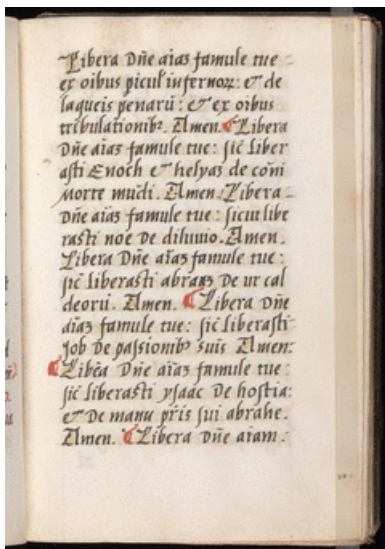 Libera Dñe aīaз famule tue
ex oibus picul' infernoꝝ: & de
laqueis penarū: & ex oibus
tribulationibꝫ. Amen. Libera
Dñe aīaз famule tue: sic̄ liber
asti Enoch & helyas de cōni
morte mūdi. Amen. Libera
Dñe aīaз famule tue: sicut libe
rasti noe de diluuio. Amen.
Libera Dñe aīaз famule tue:
sic̄ liberasti abraaз de ur cal
deorū. Amen. Libera Dñe
aīaз famule tue: sic̄ liberasti
Job de passionibꝫ suis Amen:
Libēa Dñe aīaз famule tue:
sic̄ liberasti ysaac de hostia:
& de manu pr̄is sui abrahe.
Amen. Libera Dñe aīam: